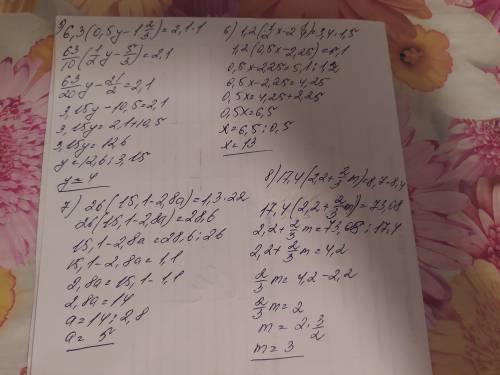 5) 6,3(0,5y-1 2/3)=2,1·1
63/10(1/2y-5/3)=2,1
63/20y-21/2=2,1
3,15y-10,5=2,1
3,15y=2,1+10,5
3,15y=12,6
y=12,6:3,15
y=4
6) 1,2(1/2x-2 1/4)=3,4·1,5
1,2(0,5x-2,25)=5,1
0,5x-2,25=5,1:1,2
0,5x-2,25=4,25
0,5x=4,25+2,25
0,5x=6,5
x=6,5:0,5
x=13
7) 26(15,1-2,8a)=1,3·22
26(15,1-2,8a)=28,6
15,1-2,8a=28,6:26
15,1-2,8a=1,1
2,8a=15,1-1,1
2,8a=14
a=14:2,8
a=5
8) 17,4(2,2+2/3m)=8,7·8,4
17,4(2,2+2/3m)=73,08
2,2+2/3m=73,08:17,4
2,2+2/3m=4,2
2/3m=4,2-2,2
2/3m=2
m=2·3/2
m=3